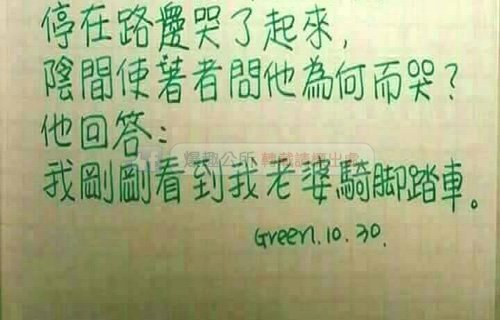 停在路邊哭了起來，
陰間使著者問他為何而哭？
他回答：
爆趣公所
我剛剛看到我老婆騎脚踏車。
Green.10.30.